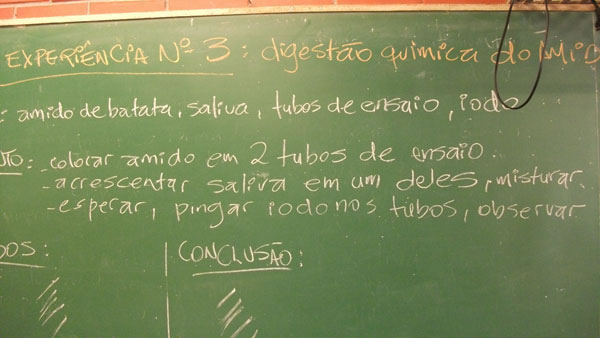 EXPERIÊNCIA Nº 3: digestão química do AMID
: amido de batata, saliva, tubos de ensaio, iodo
NTO: -colocar amido em 2 tubos de ensaio.
-acrescentar saliva em um deles, misturar.
-esperar, pingar iodo nos tubos, observar
DOS:
CONCLUSÃO: